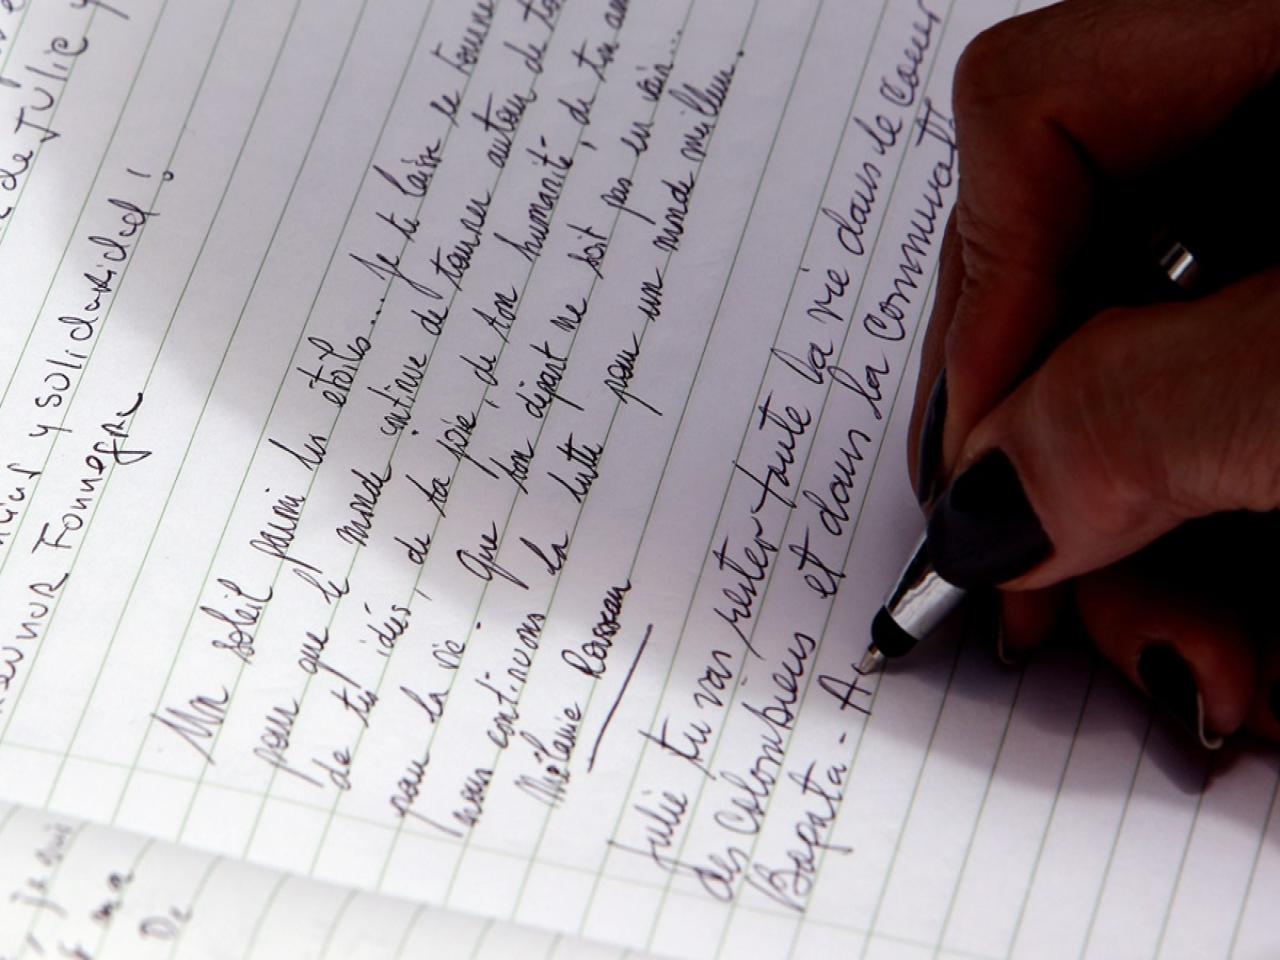 de JULIE y
y solidaridad !
Fonnegra
Un soleil parmi les étoiles... je te laisse
pour que le monde continue de tourner autour de
de tes idées, de ta joie, de ton humanité, de ton
pour la vie. Que ton départ ne soit pas en vain...
nous continuons la lutte pour un monde meilleur.
Mélanie
Julie tu vas rester toute la vie dans le coeur
des colombiens et dans la
Bogota - A
je
ma
De